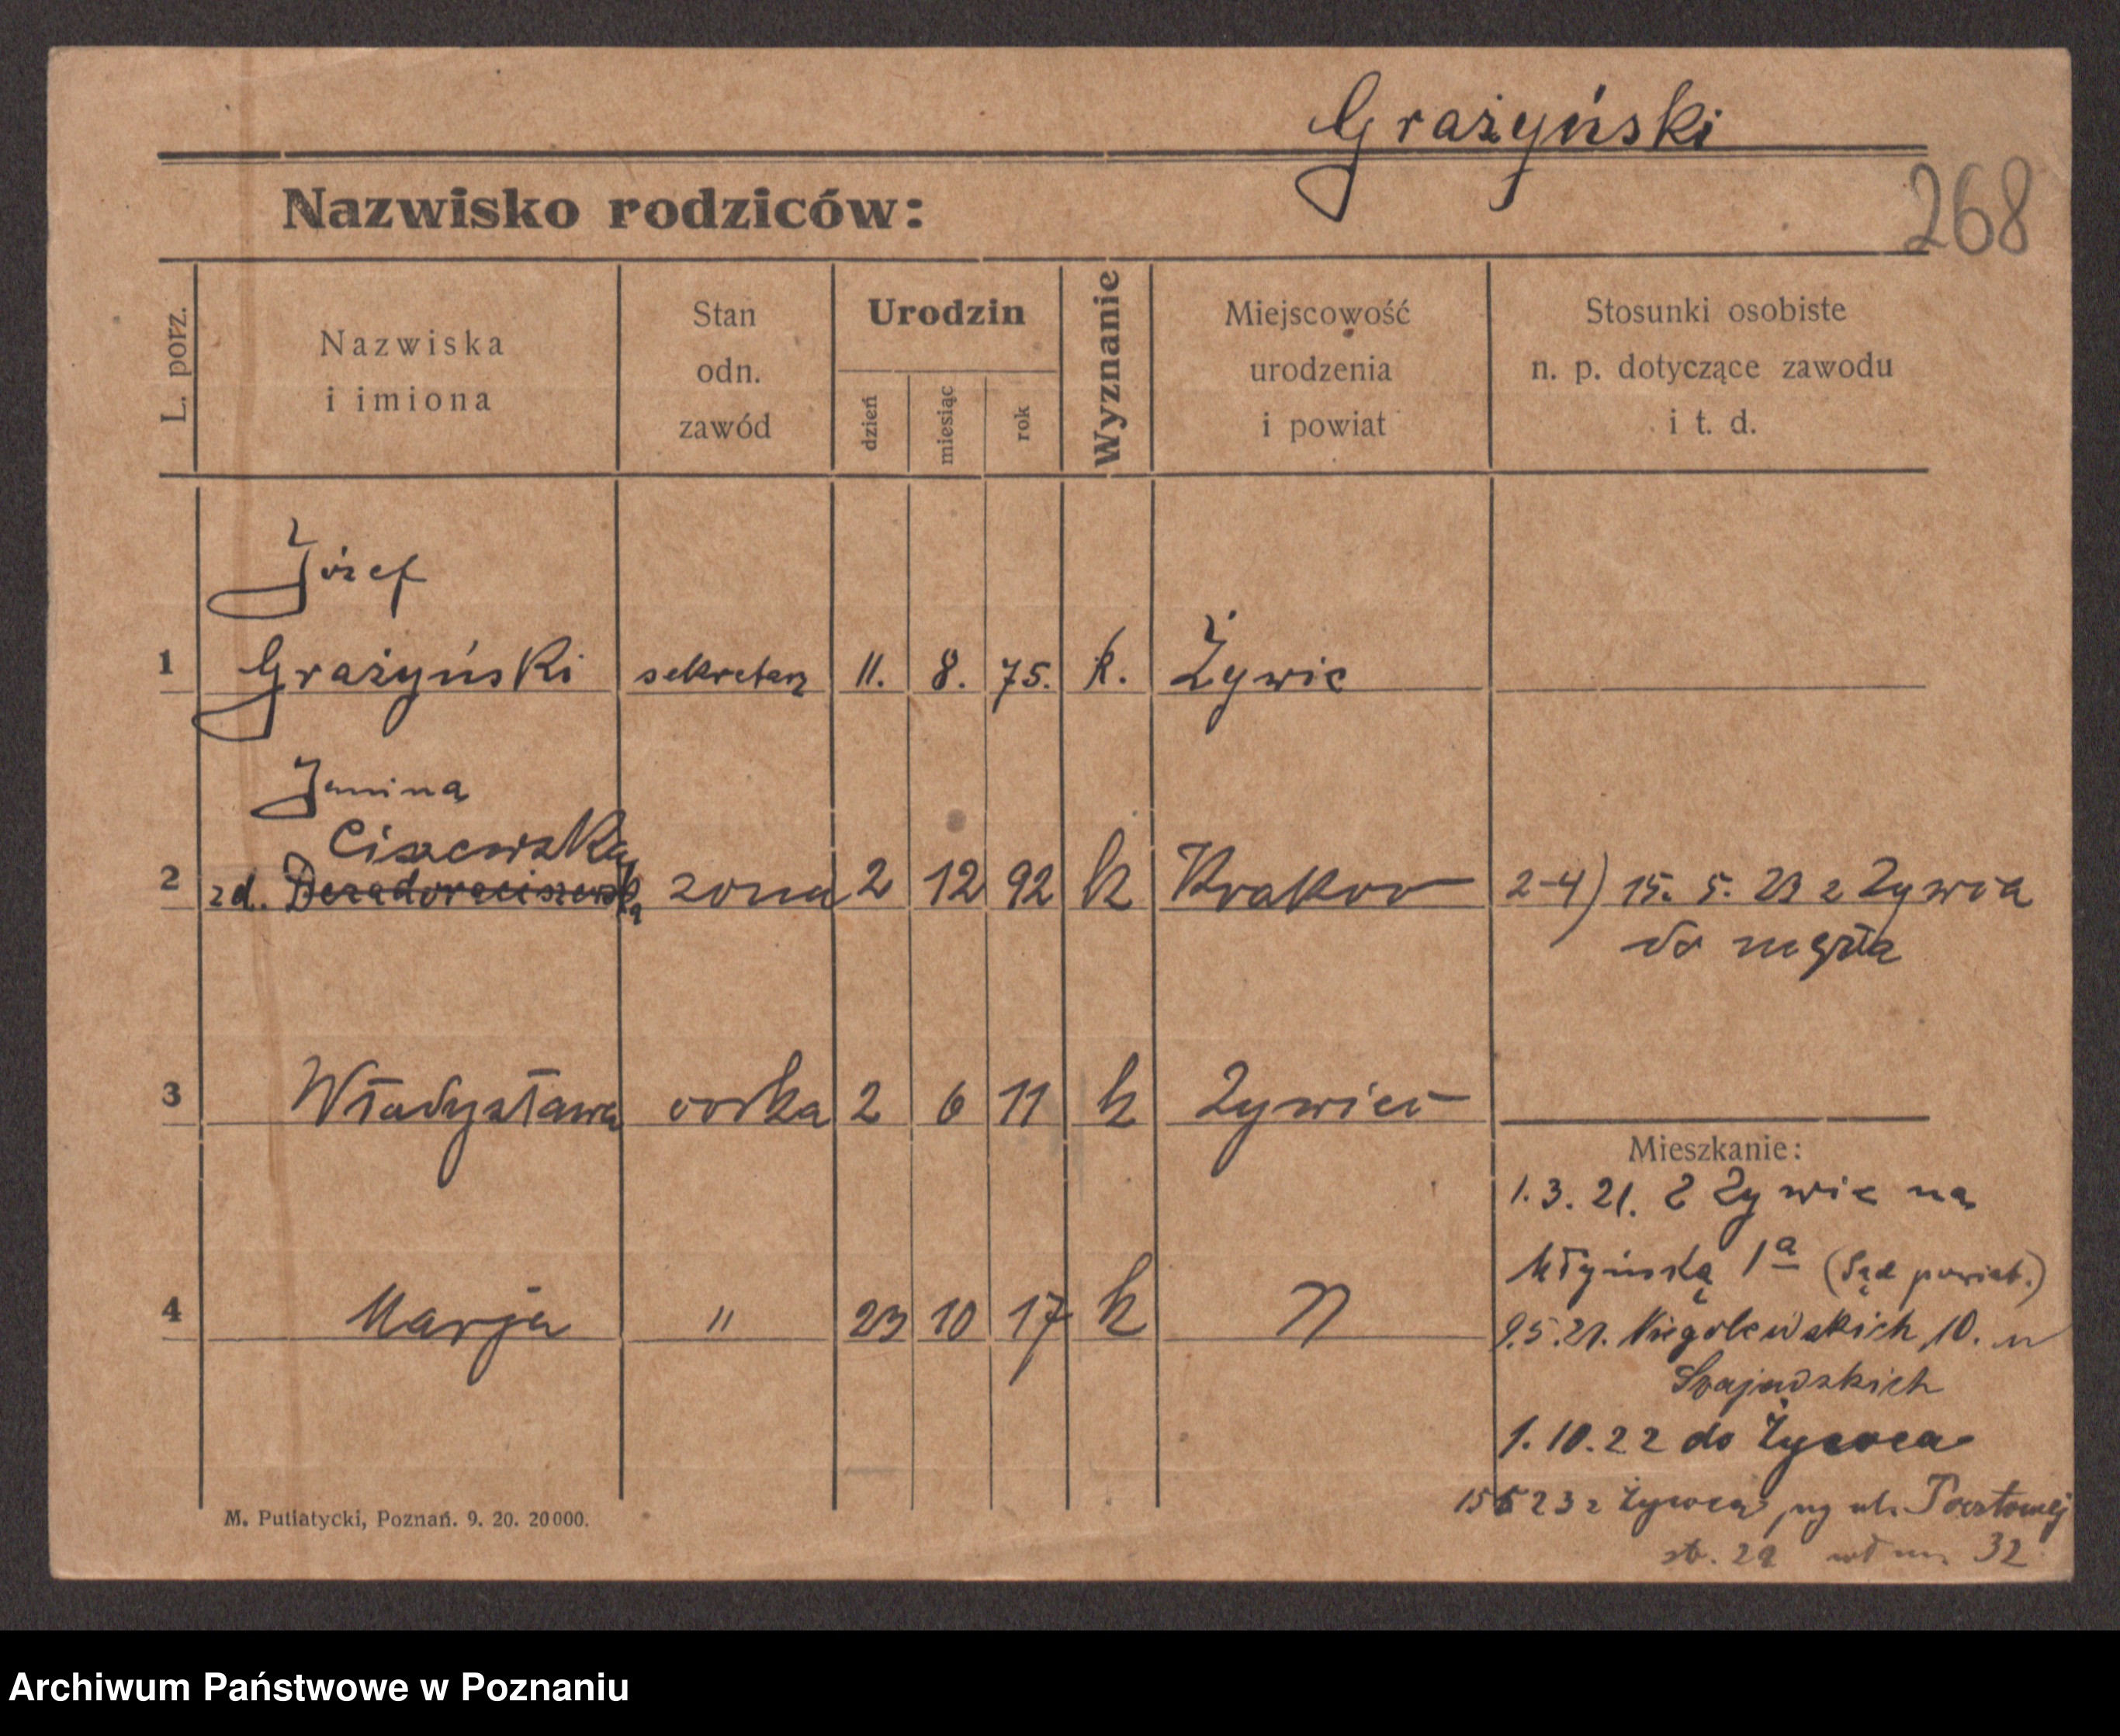 Grażyński
Nazwisko rodziców:
268
L. porz.
Nazwiska
i imiona
Stan
odn.
zawód
Urodzin
dzień
miesiąc
rok
Wyznanie
Miejscowość
urodzenia
i powiat
Stosunki osobiste
n. p. dotyczące zawodu
i t. d.
Józef
1 Grażyński sekretarz 11. 8. 75. k. Żywic
Janina
Ciszewska
2 zd. żona 2 12 92 k Krakow 2-4) 15. 5. 23 z Zywca
do męża
3 Władysława corka 2 6 11 k Zywiec
Mieszkanie:
1. 3. 21. Z Zywic na
Młyńską 1a (Sąd powiat.)
4 Marja " 23 10 17 k "
9.5.21. Niegolewskich 10. u
1.10.22 do Żywca
15 5 23 z Żywca, ul. Pocztowej
32
M. Putiatycki, Poznań. 9. 20. 20000.
Archiwum Państwowe w Poznaniu